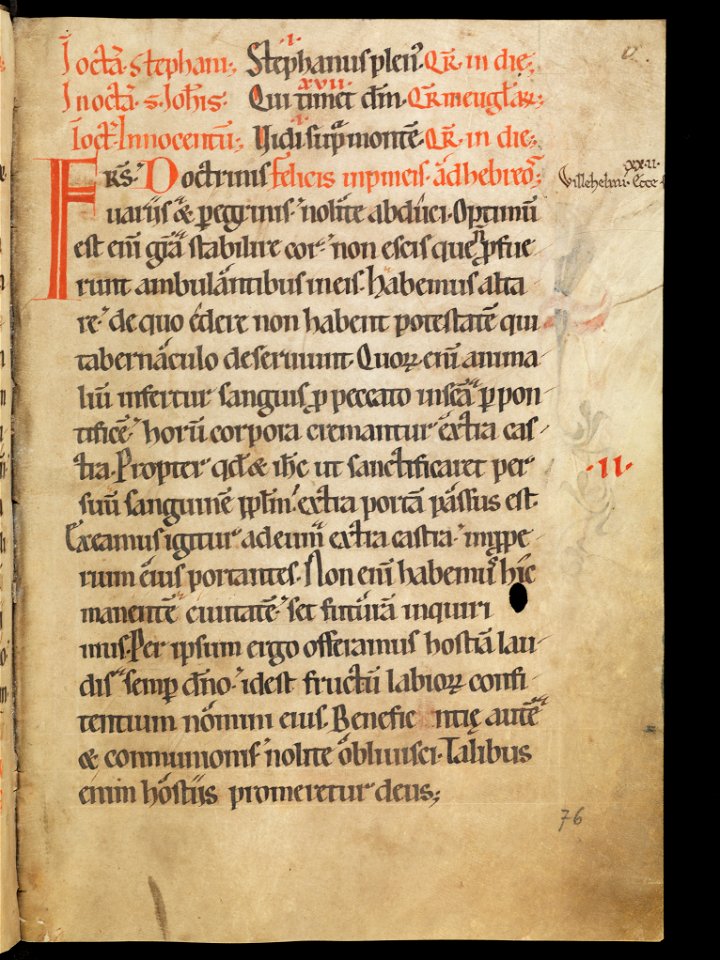 I octā. stephani; Stephanus plen᷒. Q̄R̄. in die;
.I.
In octā. s. Ioh̄is. Qui timet dm̄. Q̄R̄. meuglar;
.XVII.
I oct̄. Innocentū; Vidi sup̄ montē. Q̄R̄. in die;
.I.
FR̄S. Doctrinis felicis inpmeis. ad hebreos;
uariis & peregrinis nolite abduci. Optimū
est eni᷒ gr̄a stabilire cor. non escis que n̄ pfue
runt ambulantibus in eis. habemus alta
re. de quo edere non habent potestatē qui
tabernaculo deseruiunt. Quorꝝ eni᷒ anima
liū infertur sanguis ꝓ peccato in scā ꝑ pon
tificē. horū corpora cremantur extra cas
tra. Propter qd̄ & ih̄c ut sanctificaret per
suū sanguinē ppl̄m. extra portā passus est.
Exeamus igitur ad eum extra castra. inꝓpe
rium eius portantes. Non eni᷒ habemus hic
manentē ciuitatē. set futurā inquiri
mus. Per ipsum ergo offeramus hostiā lau
dis semꝑ dn̄o. id est fructū labiorꝝ confi
tentium nomini eius. Beneficentię autē
& communionis nolite obliuisci. Talibus
enim hostiis promeretur deus;
XX.II.
Willehelmi. Ecce
.II.
76